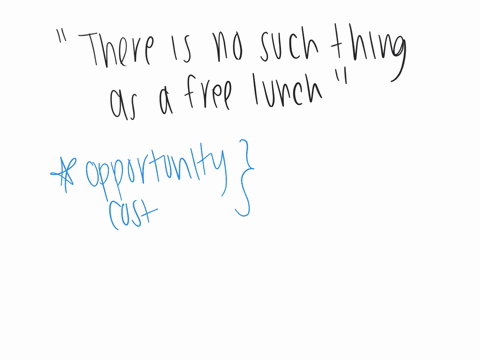 "There is no such thing
as a free lunch"
* opportunity }
cost